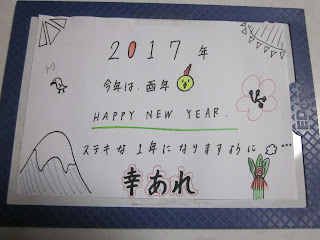 2017年
トリ
今年は、酉年
HAPPY NEW YEAR.
ステキな1年になりますように…
幸あれ